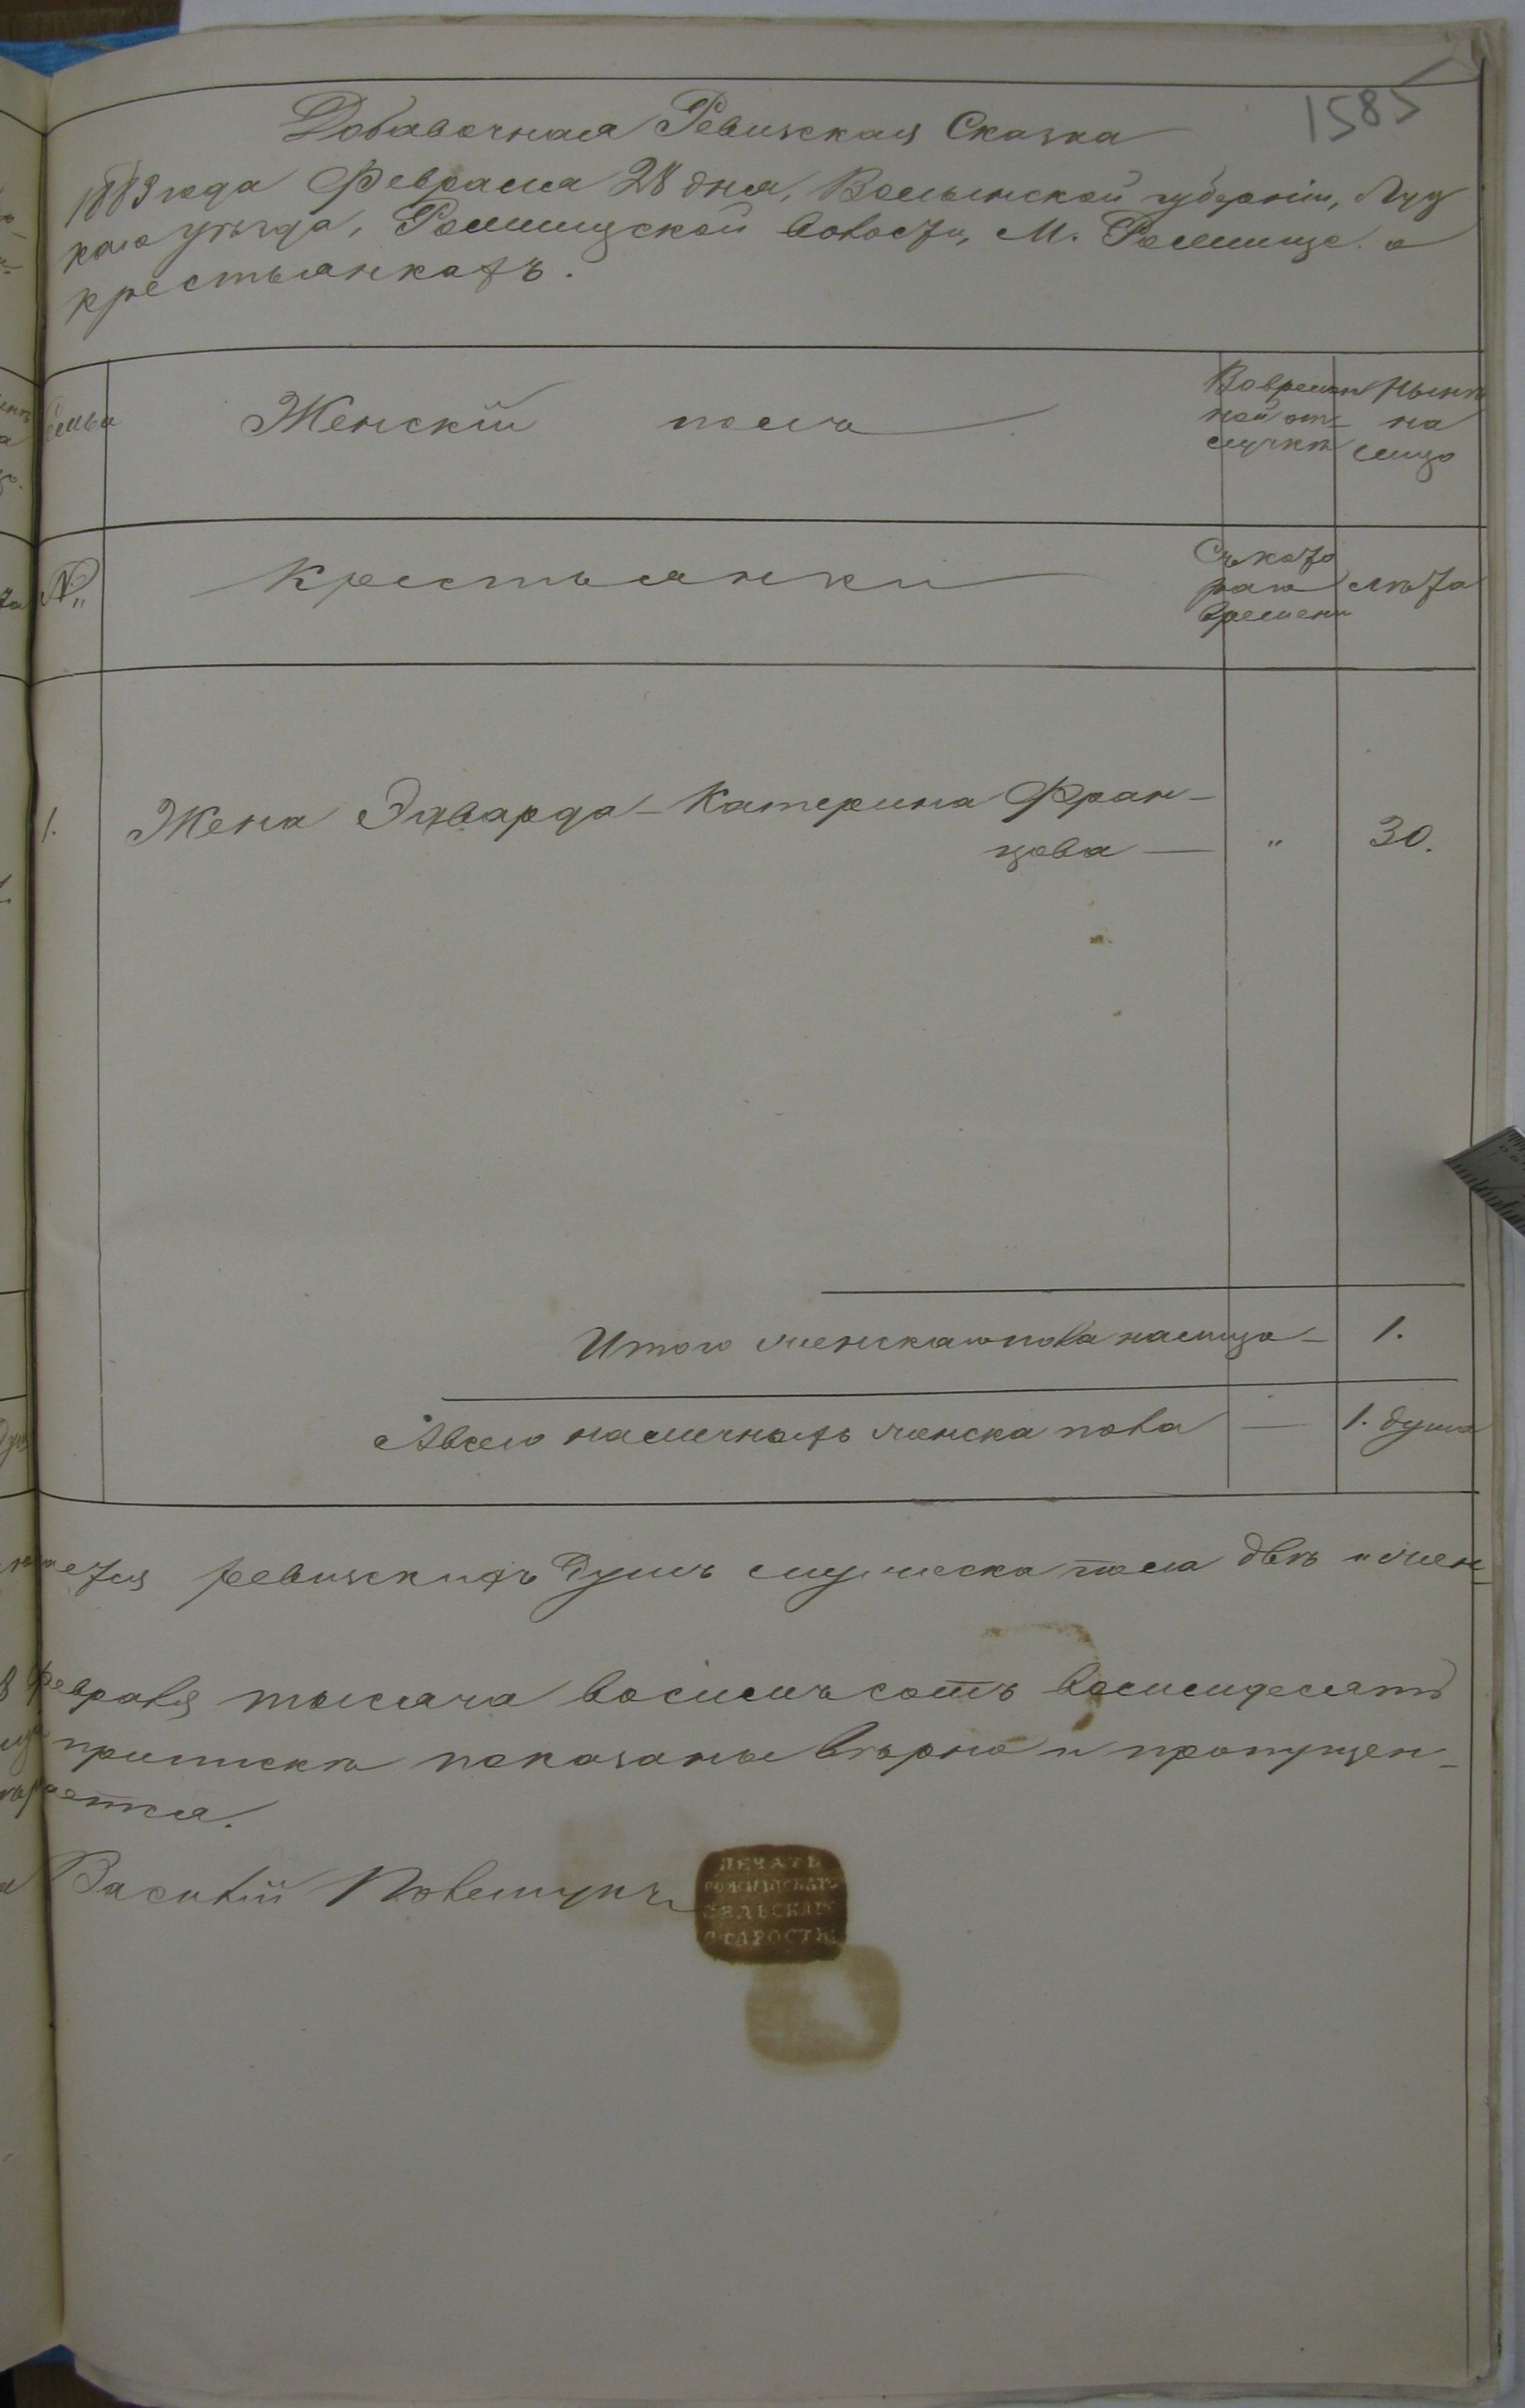 1585
Добавочная Ревизская Сказка
1883 года Февраля 28 дня, Волынской губерніи, Луц
каго уѣзда, Рожищской волости, М. Рожище о
крестьянкахъ.
Семья
Женскій полъ
Во времен
ной от-
лучкѣ
Нынѣ
на
лицо
№
Крестьянки
Съ кото
раго
времени
Лѣта
1. Жена Эдварда - Катерина Фран-
цова — " 30.
Итого женскаго пола на лицо - 1.
А всего наличныхъ женска пола — 1. душа
ется ревизскихъ душъ мужеска пола двѣ и жен-
Февраля тысяча восемьсотъ восемьдесятъ
приписки показаны вѣрно и пропущен-
ется.
Василій Полещукъ
ПЕЧАТЬ
РОЖИЩСКАГО
СЕЛЬСКАГО
СТАРОСТЫ